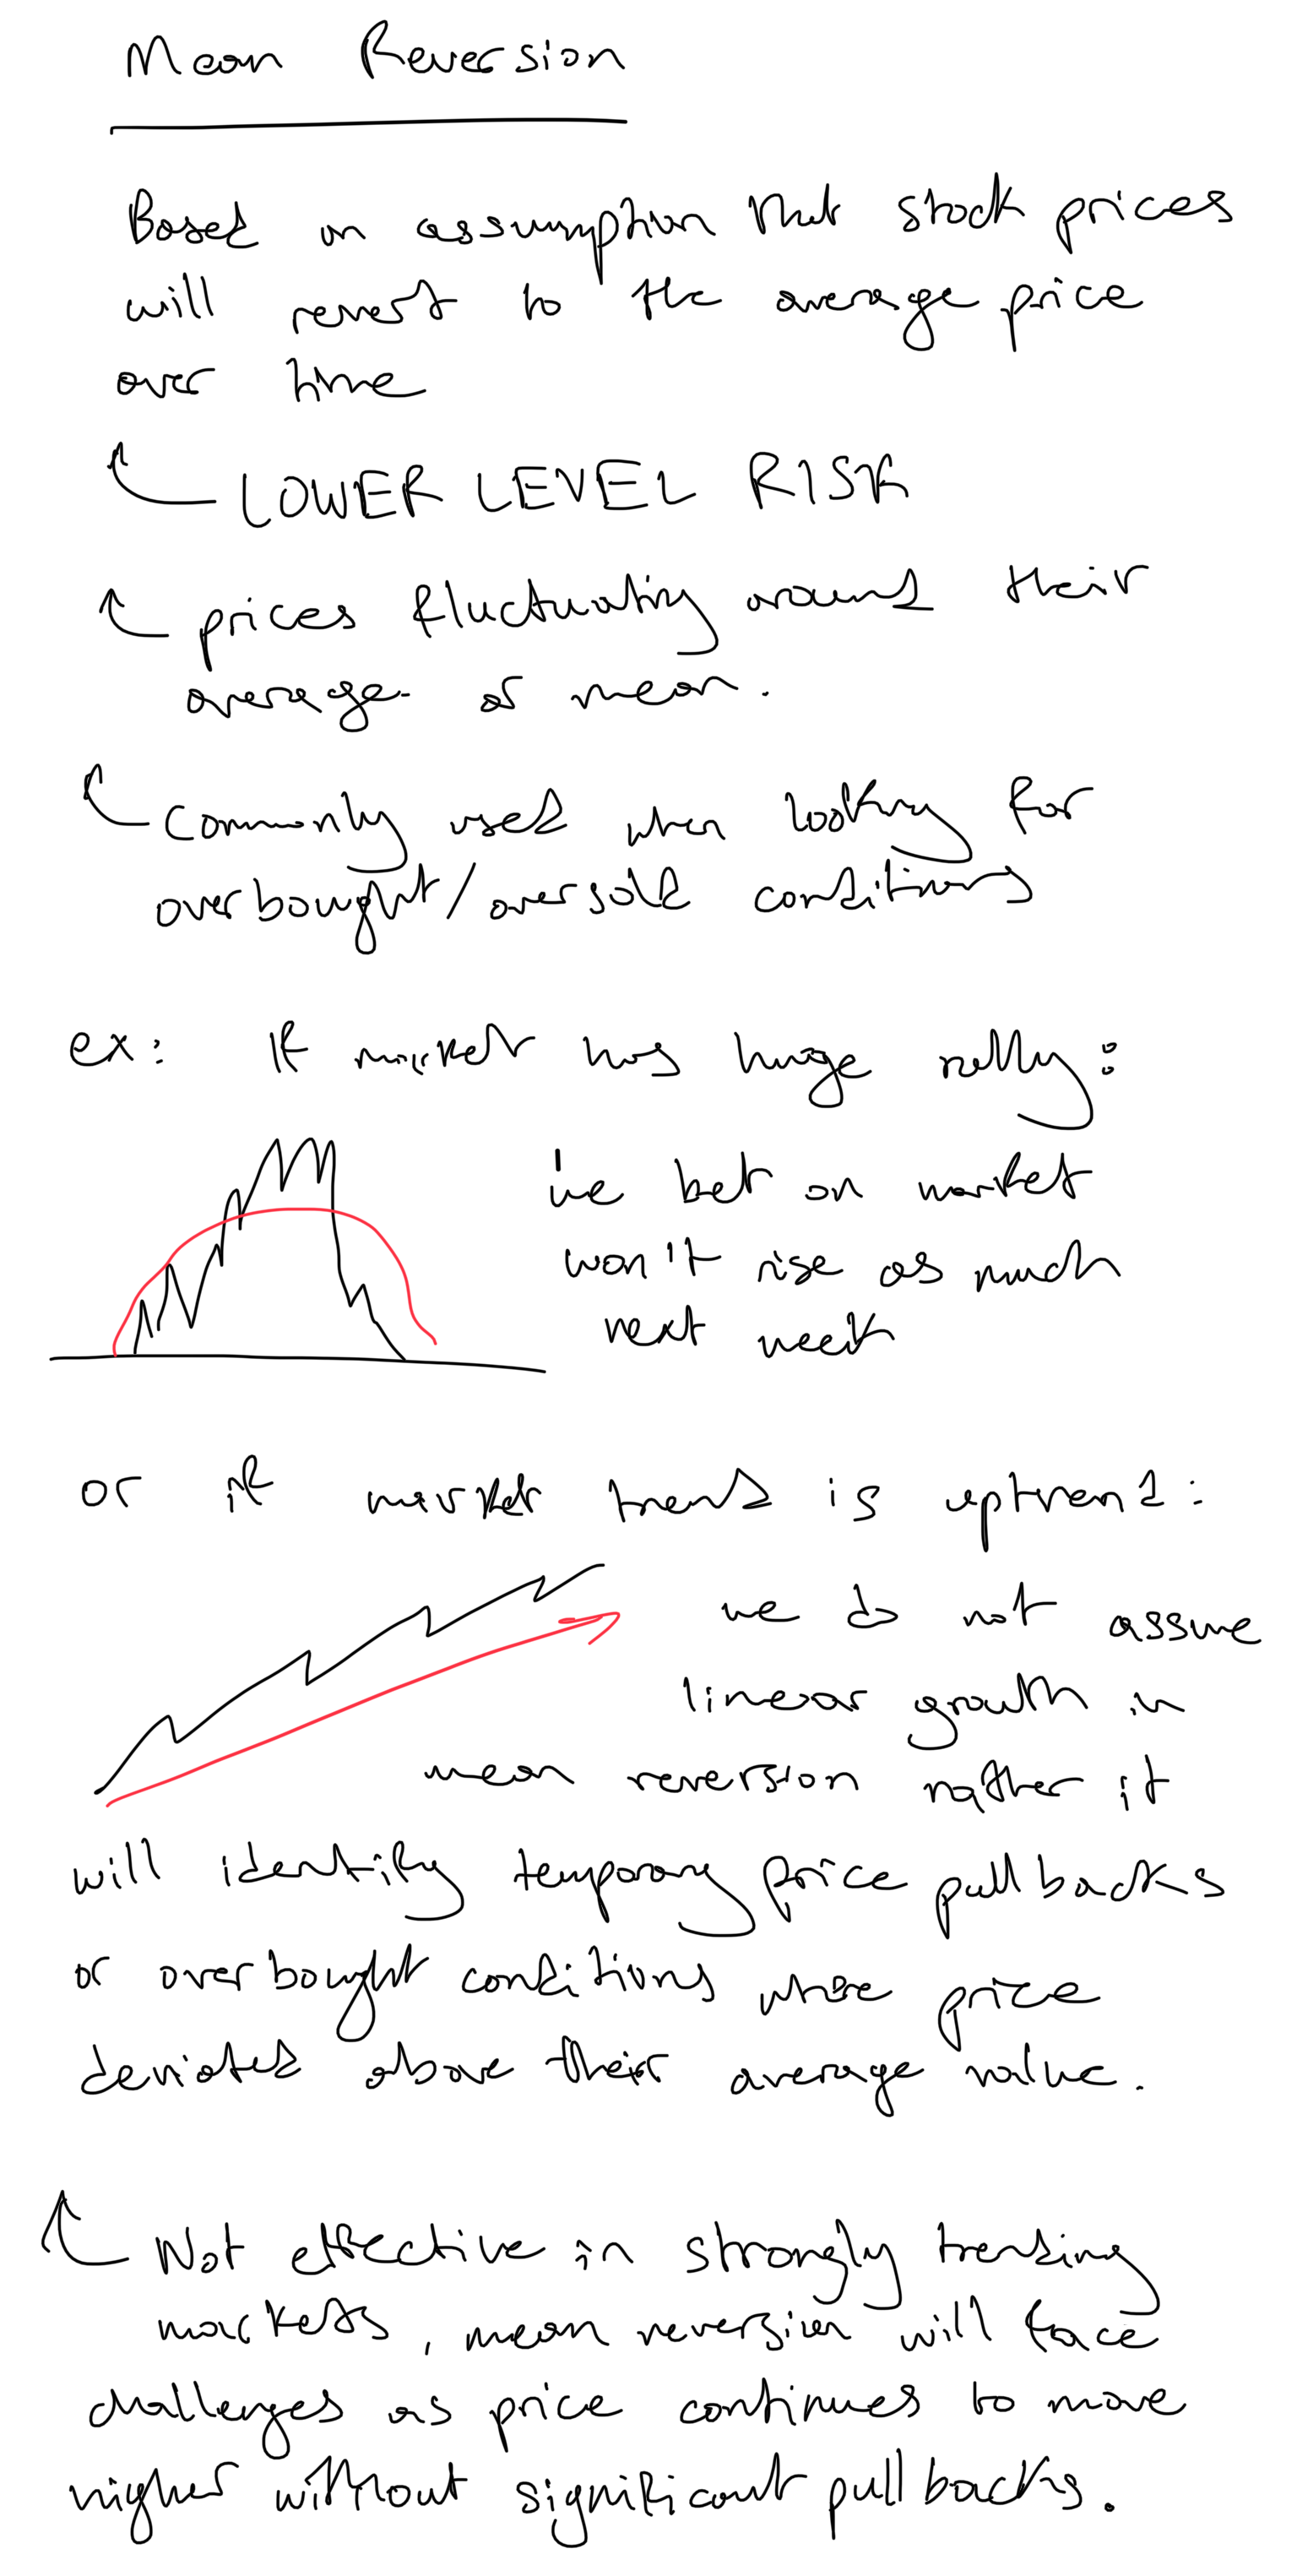 Mean Reversion
Based on assumption that stock prices
will revert to the average price
over time
LOWER LEVEL RISK
prices fluctuating around their
average or mean.
commonly used when looking for
overbought/oversold conditions
ex: If market has huge rally:
we bet on market
won't rise as much
next week
or if market trend is uptrend:
we do not assume
linear growth in
mean reversion rather it
will identify temporary price pullbacks
or overbought conditions where price
deviated above their average value.
Not effective in strongly trending
markets, mean reversion will face
challenges as price continues to move
higher without significant pullbacks.